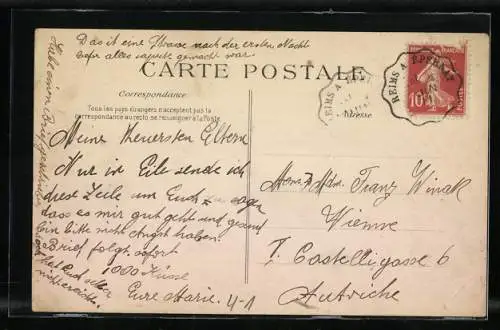 Das ist eine Strasse nach der ersten Nacht
bevor alles kaputt gemacht war.
CARTE POSTALE
Correspondance
Tous les pays étrangers n'acceptent pas la
correspondance au recto, se renseigner à la Poste.
Adresse
REIMS A EPERNAY
REIMS A EPERNAY
10
Meine Teuersten Eltern
Nur in Eile sende ich
diese Zeile um Euch zu sagen
dass es mir gut geht und gesund
bin bitte nicht Angst haben.
Brief folgt sofort
1000 Küsse
Eure Marie
4-1
Mons. & Mdm. Franz Winak
Vienne
V. Castelligasse 6
Autriche